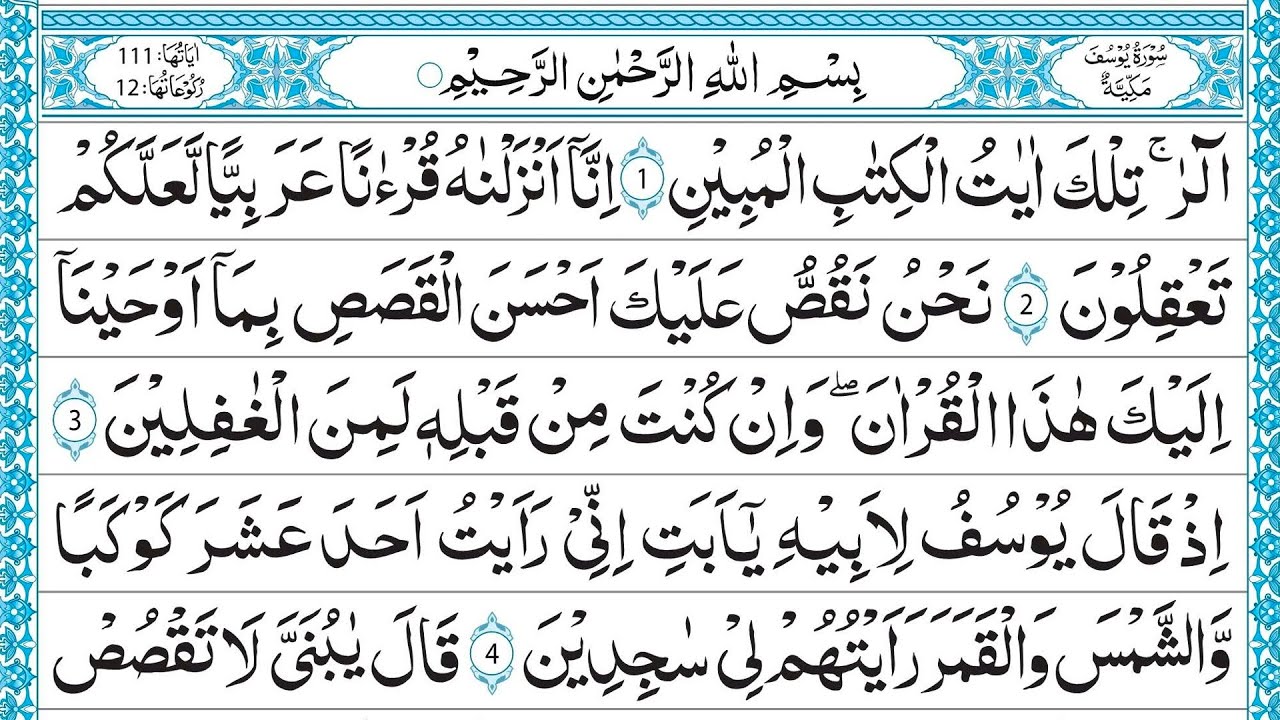 سُوْرَةُ يُوْسُفَ
مَكِّيَّةٌ
بِسْمِ اللّٰهِ الرَّحْمٰنِ الرَّحِيْمِ
اٰيَاتُهَا: 111
رُكُوْعَاتُهَا: 12
الٓرٰ ۚ تِلْكَ اٰيٰتُ الْكِتٰبِ الْمُبِيْنِ 1 اِنَّاۤ اَنْزَلْنٰهُ قُرْءٰنًا عَرَبِيًّا لَّعَلَّكُمْ
تَعْقِلُوْنَ 2 نَحْنُ نَقُصُّ عَلَيْكَ اَحْسَنَ الْقَصَصِ بِمَاۤ اَوْحَيْنَاۤ
اِلَيْكَ هٰذَا الْقُرْاٰنَ ۖ وَاِنْ كُنْتَ مِنْ قَبْلِهٖ لَمِنَ الْغٰفِلِيْنَ 3
اِذْ قَالَ يُوْسُفُ لِاَبِيْهِ يٰۤاَبَتِ اِنِّيْ رَاَيْتُ اَحَدَ عَشَرَ كَوْكَبًا
وَّالشَّمْسَ وَالْقَمَرَ رَاَيْتُهُمْ لِيْ سٰجِدِيْنَ 4 قَالَ يٰبُنَيَّ لَا تَقْصُصْ